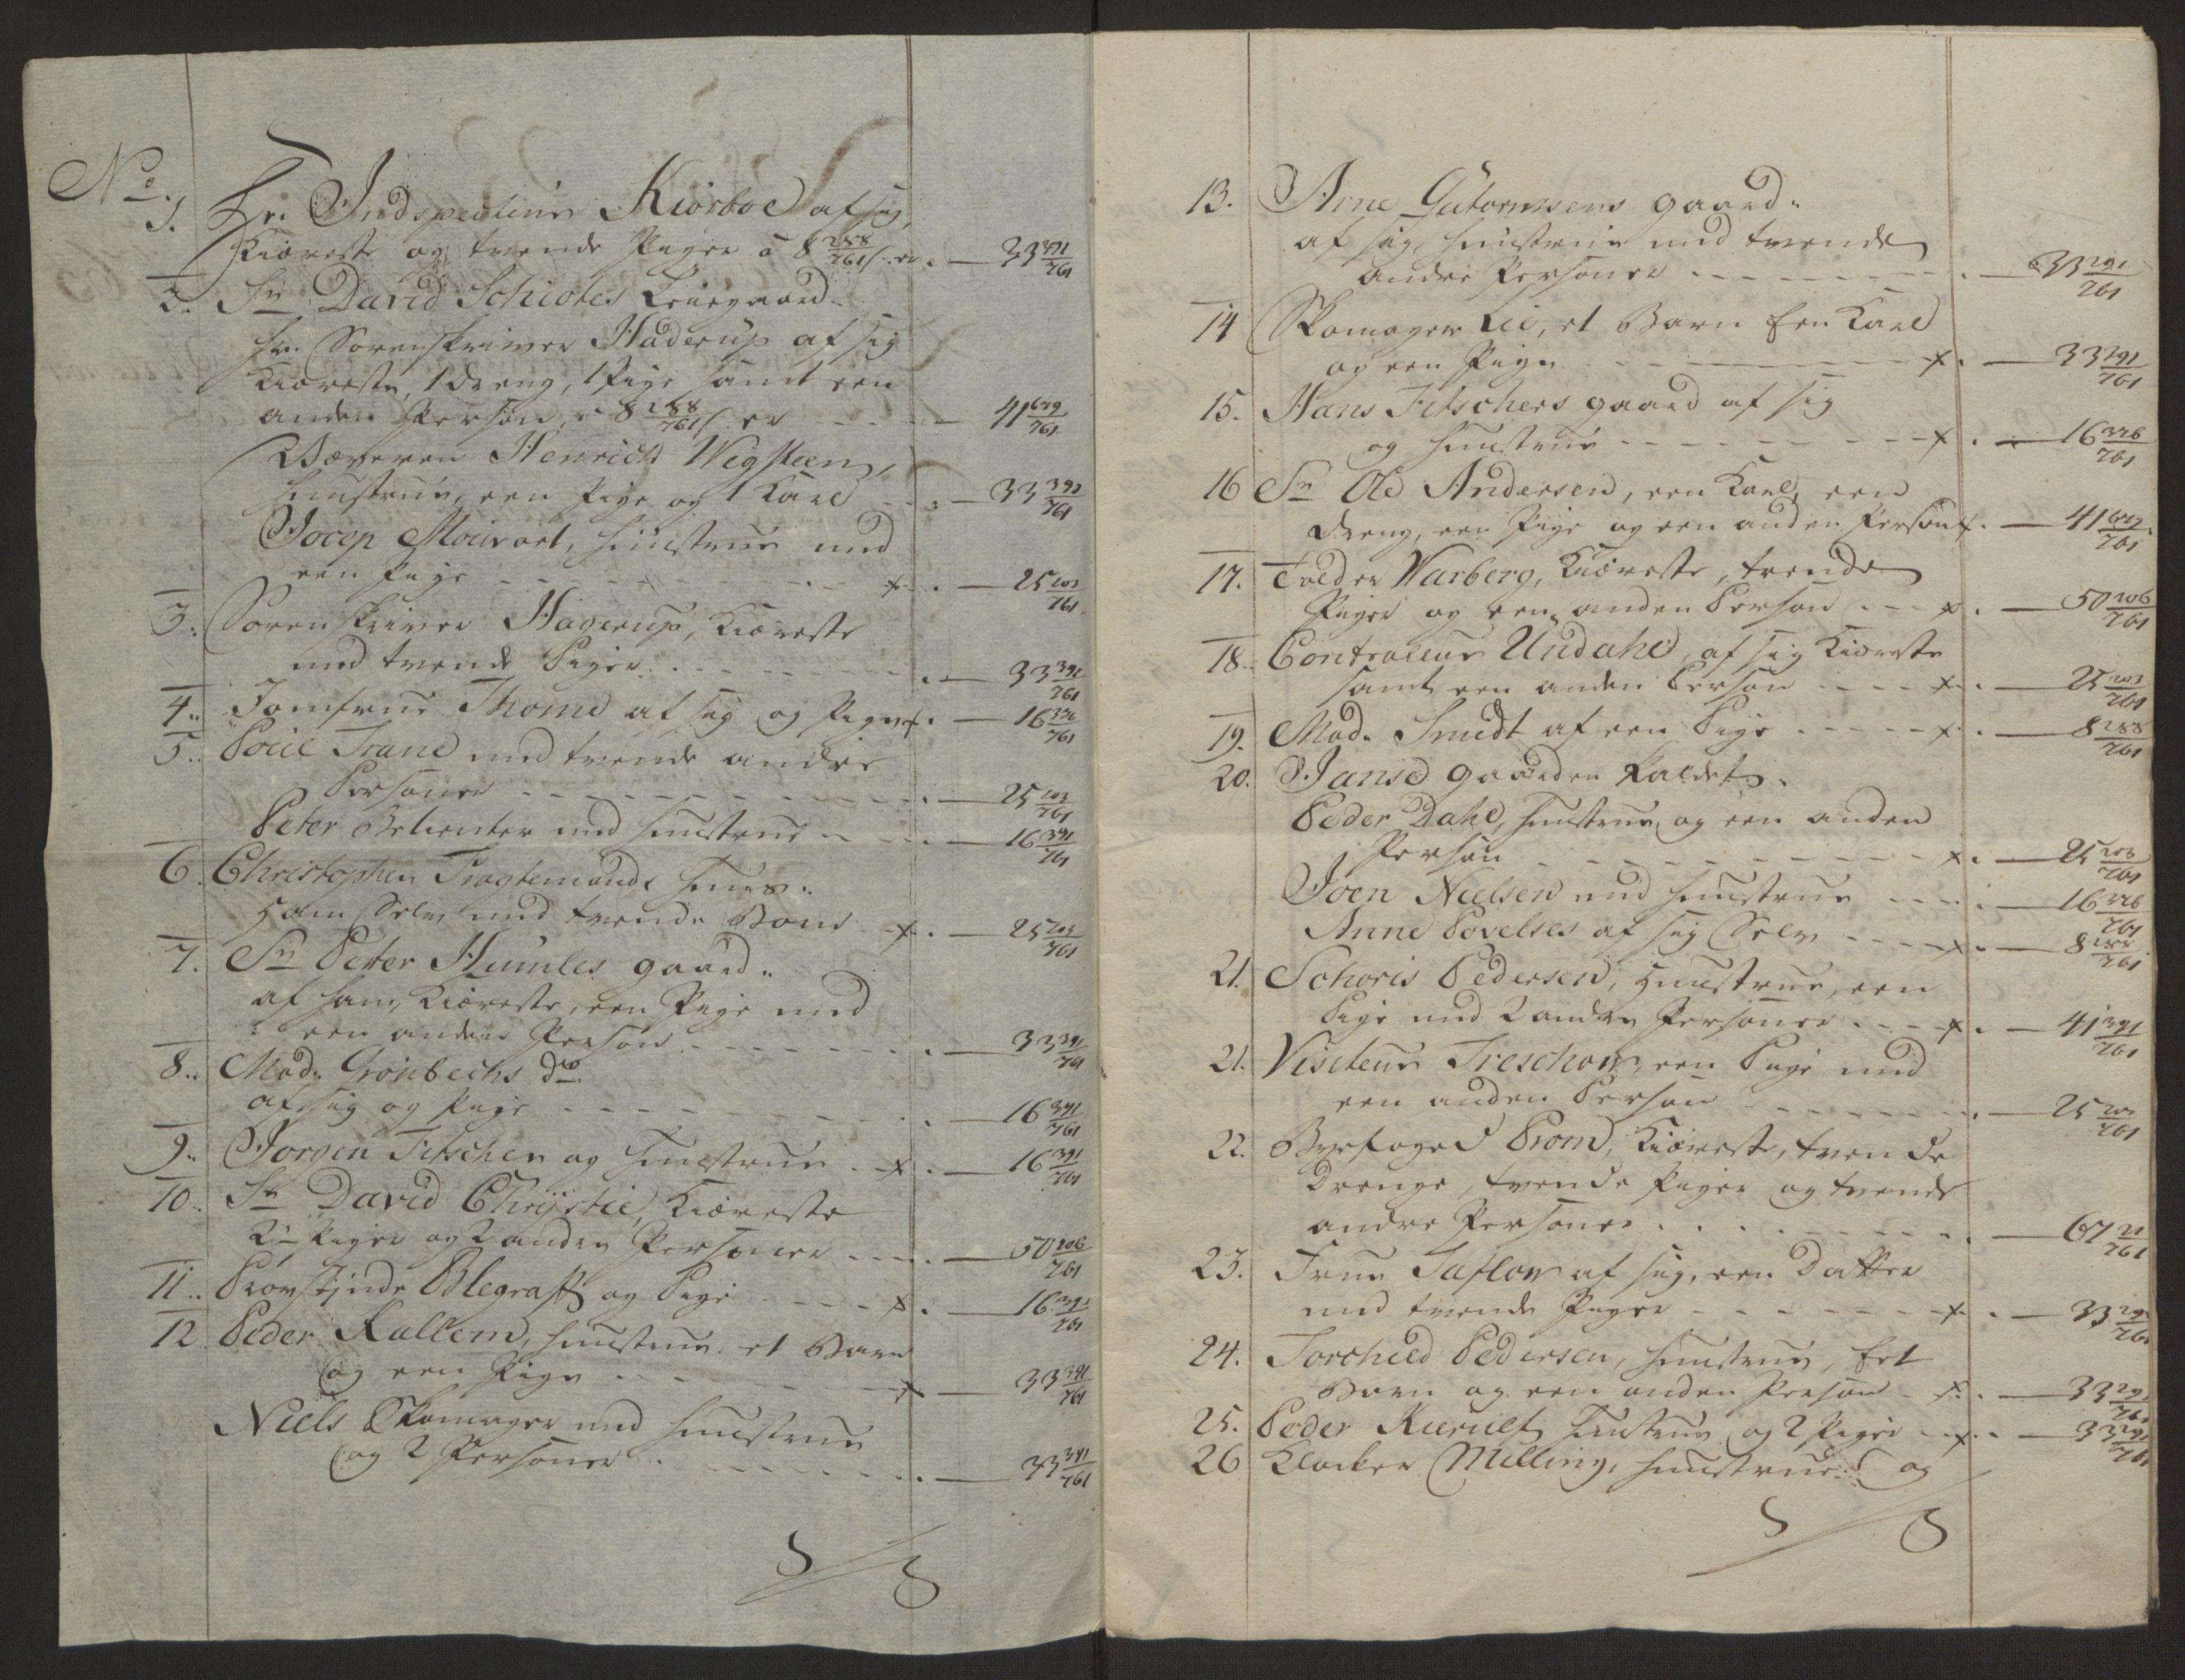 No
1. Hr. Indspecteur Kiorboe af sig,
Kiæreste og tvende Piger a 8 288/761 s. er . — 33 391/761
2. Sr David Schiøtes Leiegaard.
Hr. Sorenskriver Haderup af sig
Kiæreste, 1 dreng, 1 Pige samt een
anden Person, a 8 288/761 s. er — 41 679/761
Væveren Henrich Wegsteen,
Hustrue, een Pige og 1 Karl — 33 391/761
Jocep Mourart, Hustrue med
een Pige — x . — 25 103/761
3. Sorenskriver Hagerup, Kiæreste
med tvende Piger . — 33 391/761
4. Jomfrue Thome af sig og Pige x . — 16 376/761
5. Poul Trane med tvende andre
Personer . — 25 103/761
Peter Betienter med Hustrue — 16 391/761
6. Christopher Tragtemands Huus.
ham Selv med tvende Børn x . — 25 103/761
7. Sr Peter Humles gaard.
af ham, Kiæreste, een Pige med
een anden Person . — 33 391/761
8. Mad. Grønbechs do
af sig og Pige . — 16 391/761
9. Jørgen Fitscher og Hustrue . x . — 16 391/761
10. Sr David Chrÿstie, Kiæreste
2 Piger og 2 anden Personer . — 50 206/761
11. Provstinde Blegrafft og Pige — x . — 16 391/761
12 Peder Kallem, Hustrue et Barn
og een Pige — x — 33 391/761
Niels Skomager med Hustrue
og 2 Personer . — 33 391/761
13. Arne Gutormsens gaard.
af sig, Hustrue med tvende
andre Personer . — 33 291/761
14 Skomager Lie, et Barn Een Karl
og een Pige — x . — 33 291/761
15. Hans Fitschers gaard af sig
og Hustrue — x . — 16 326/761
16 Sr Ole Andersen, een Karl, een
dreng, een Pige og een anden Person x . — 41 679/761
17. Tolder Warberg, Kiæreste, tvende
Piger og een anden Person — x . — 50 206/761
18. Contraleur Undahl, af sig Kiæreste
samt een anden Person — x . — 25 103/761
19. Mad. Smidt af een Pige — x . — 8 288/761
20. Janse gaarden kaldet.
Peder Dahl, Hustrue og een anden
Person — x . — 25 103/761
Joen Nielsen med Hustrue . — 16 326/761
Anne Povelses af sig Selv — x . — 8 288/761
21. Schoris Pedersen, Hustrue, een
Pige med 2 anden Personer — x . — 41 391/761
21. Visiteur Treschow, een Pige med
een anden Person . — 25 103/761
22. Byefoged Prom, Kiæreste, tvende
Drenge, tvende Piger og tvende
andre Personer . — 67 21/761
23. Frue Taflow af sig, een Datter
med tvende Piger — x . — 33 291/761
24. Torchild Pedersen, Hustrue, Eet
Barn og een anden Person x . — 33 291/761
25. Peder Kierulf, Hustrue og 2 Piger x . — 33 291/761
26 Klocker Milling, Hustrue og